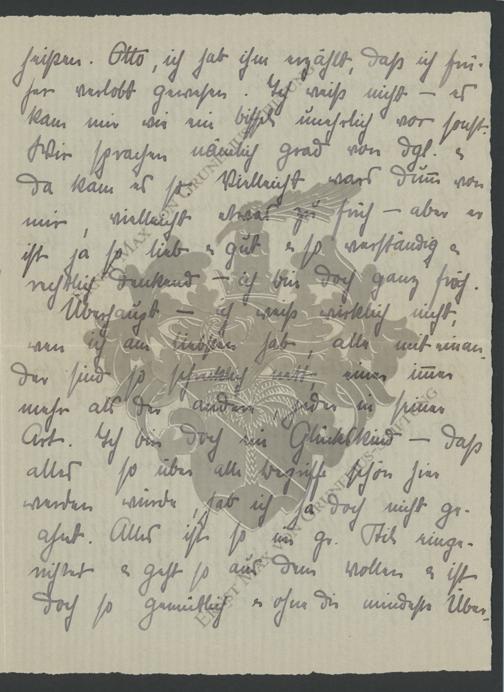 heißen. Otto, ich hab ihm erzählt, daß ich frü-
her verlobt gewesen. Ich weiß nicht – es
kam mir wie ein bissl unehrlich vor sonst.
Wir sprachen nämlich grad von dgl. &
da kam es so. Vielleicht wars dumm von
mir, vielleicht etwas zu früh – aber er
ist ja so lieb & gut & so verständig &
rechtlich denkend – ich bin doch ganz froh.
Überhaupt – ich weiß wirklich nicht,
wen ich am liebsten hab, alle mit einan-
der sind so schrecklich nett, einer immer
mehr als der andere, jeder in seiner
Art. Ich bin doch ein Glückskind – daß
alles so über alle Begriffe schön hier
werden würde, hab ich ja doch nicht ge-
ahnt. Alles ist so im gr. Stil einge-
richtet & geht so aus dem vollen & ist
doch so gemütlich & ohne die mindeste Über-
ERNST MAX VON GRUNELIUS-STIFTUNG